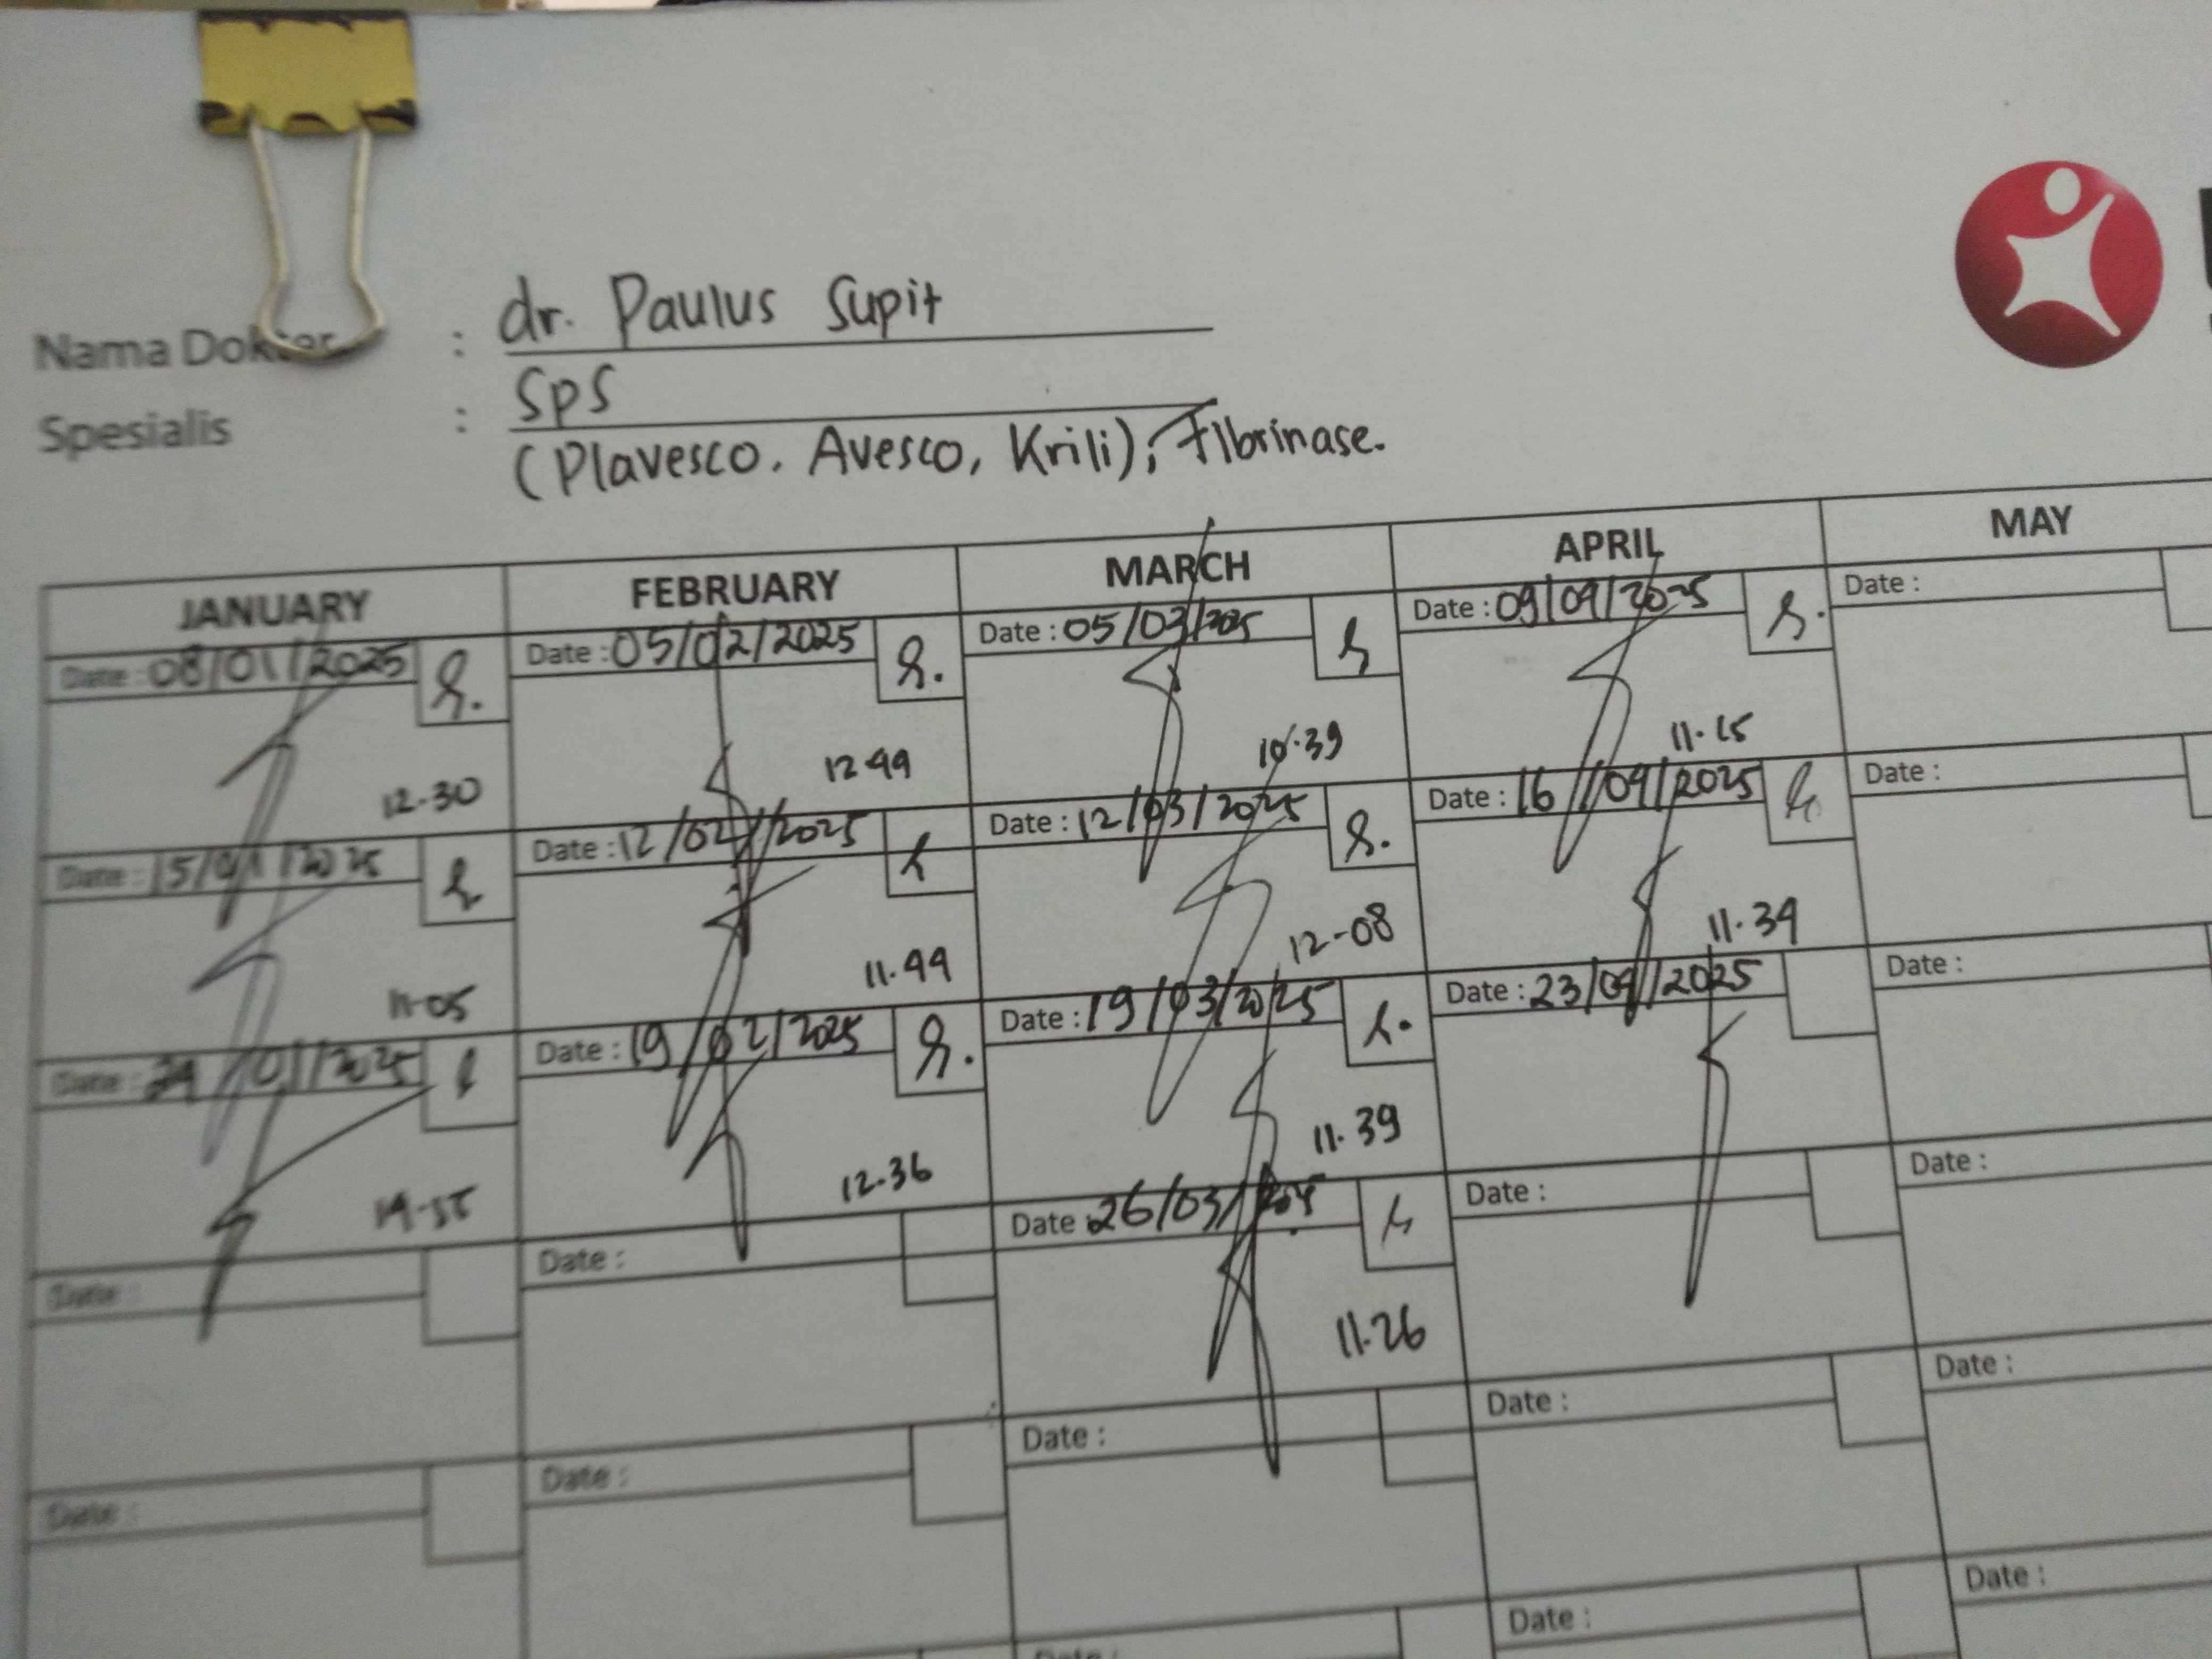 Nama Dokter : dr. Paulus Supit
Spesialis : SpS
(Plavesco, Avesco, Krili), Fibrinase.
JANUARY FEBRUARY MARCH APRIL MAY
Date : 08/01/2025 Date : 05/02/2025 Date : 05/03/2025 Date : 09/04/2025 Date :
12.30 12.44 10.39 11.15
Date : 15/01/2025 Date : 12/02/2025 Date : 12/03/2025 Date : 16/04/2025 Date :
11.05 11.44 12-08 11.34
Date : /01/2025 Date : 19/02/2025 Date : 19/03/2025 Date : 23/04/2025 Date :
12.36 11.39
Date : Date : Date : 26/03/ Date : Date :
11.26
Date : Date : Date : Date : Date :
Date : Date : Date :